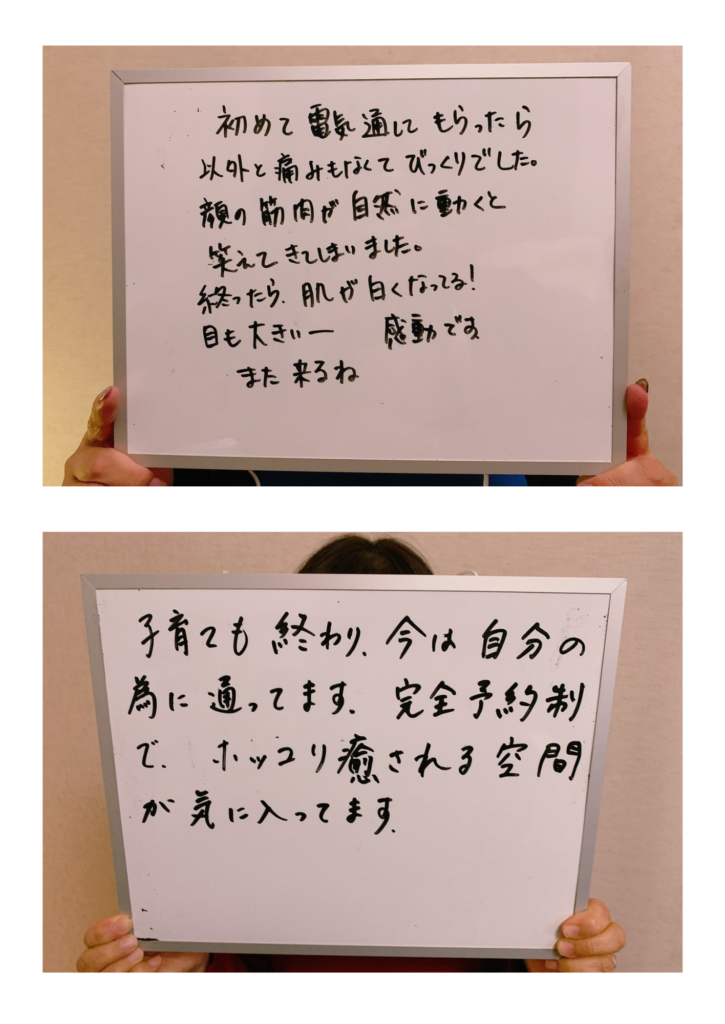 初めて電気通してもらったら
以外と痛みもなくてびっくりでした。
顔の筋肉が自然に動くと
笑えてきてしまいました。
終ったら、肌が白くなってる!
目も大きいー 感動です
また来るね
子育ても終わり、今は自分の
為に通ってます。完全予約制
で、ホッコリ癒される空間
が気に入ってます。